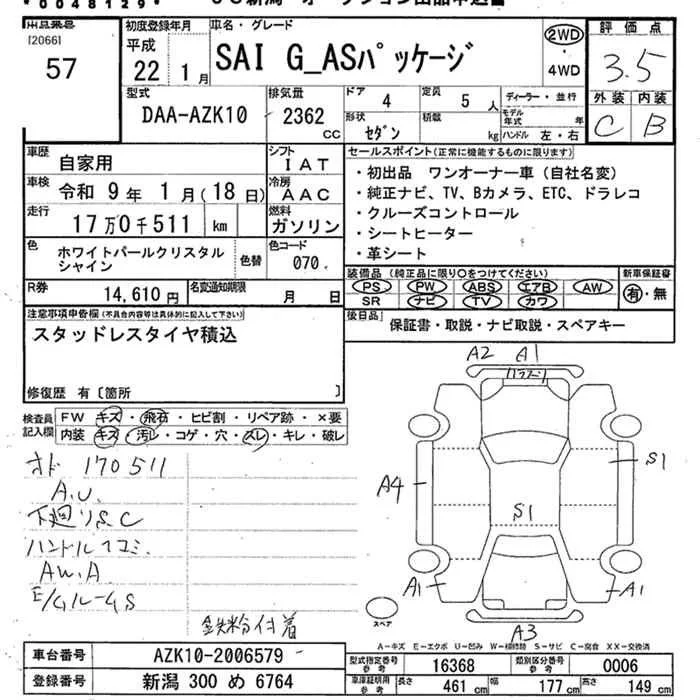 * 0048129 *
出品番号
[2066]
57
初度登録年月
平成
22年 1月
車名・グレード
SAI G_ASパッケージ
2WD
・
4WD
評価点
3.5
外装 内装
C B
型式
DAA-AZK10
排気量
2362 CC
ドア 4
定員 5 人
形状 セダン
積載 kg
ディーラー・並行
モデル年式 年
ハンドル 左・右
車歴 自家用
シフト IAT
車検 令和 9年 1月(18日)
冷房 AAC
走行 17万0千511 km
燃料 ガソリン
色 ホワイトパールクリスタルシャイン
色替
色コード 070
R券 14,610円
名変通知期限 月 日
セールスポイント(正常に機能するものに限ります)
・初出品 ワンオーナー車(自社名変)
・純正ナビ、TV、Bカメラ、ETC、ドラレコ
・クルーズコントロール
・シートヒーター
・革シート
装備品 (純正品に限り○をつけてください)
PS PW ABS エアB AW
SR ナビ TV カワ
新車保証書
有・無
後日品 保証書・取説・ナビ取説・スペアキー
注意事項申告欄(不具合内容等は具体的に記入して下さい)
スタッドレスタイヤ積込
修復歴 有〔箇所 〕
検査員記入欄
FW キズ・飛石・ヒビ割・リペア跡・×要
内装 キズ・汚レ・コゲ・穴・スレ・キレ・破レ
オド 170511
A.U.
下廻りS.C
ハンドルスコミ
AW.A
E/Gルーム S
鉄粉付着
A2 A1
S1
A4
S1
A1
A1
A3
スペア
A-キズ E-エクボ U-凹み W-補修跡 S-サビ C-腐食 XX-交換済
車台番号 AZK10-2006579
登録番号 新潟 300 め 6764
型式指定番号 参考 16368
類別区分番号 参考 0006
車庫証明用 参考 長さ 461 cm 幅 177 cm 高さ 149 cm